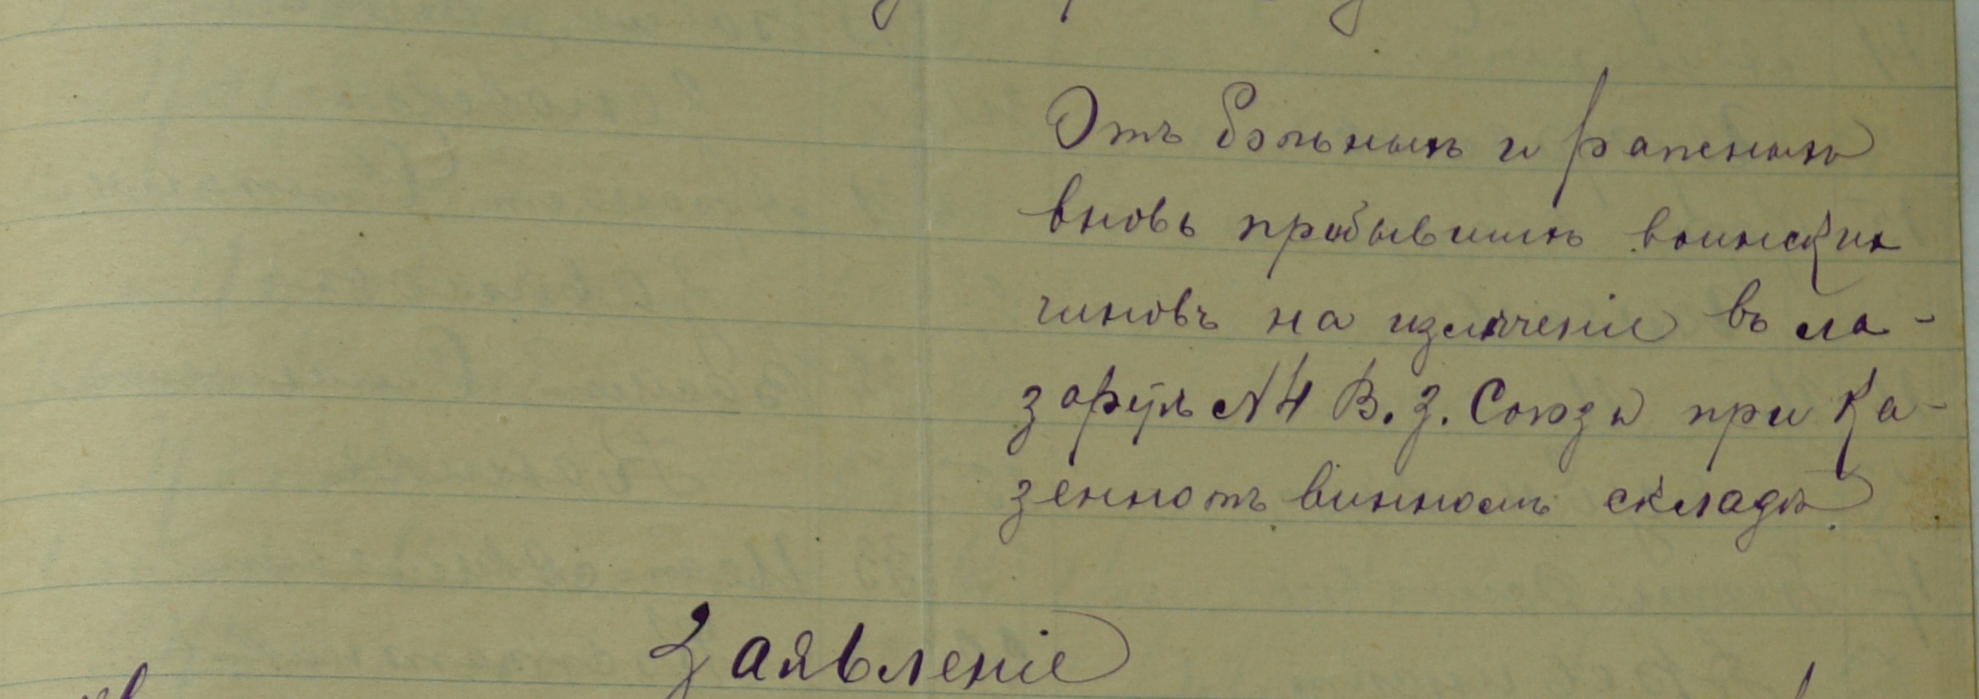 Отъ больныхъ и раненыхъ
вновь прибывшихъ воинскихъ
чиновъ на излѣченіе въ ла-
заретъ №4 В. З. Союза при Ка-
зенномъ винномъ складѣ.
Заявленіе